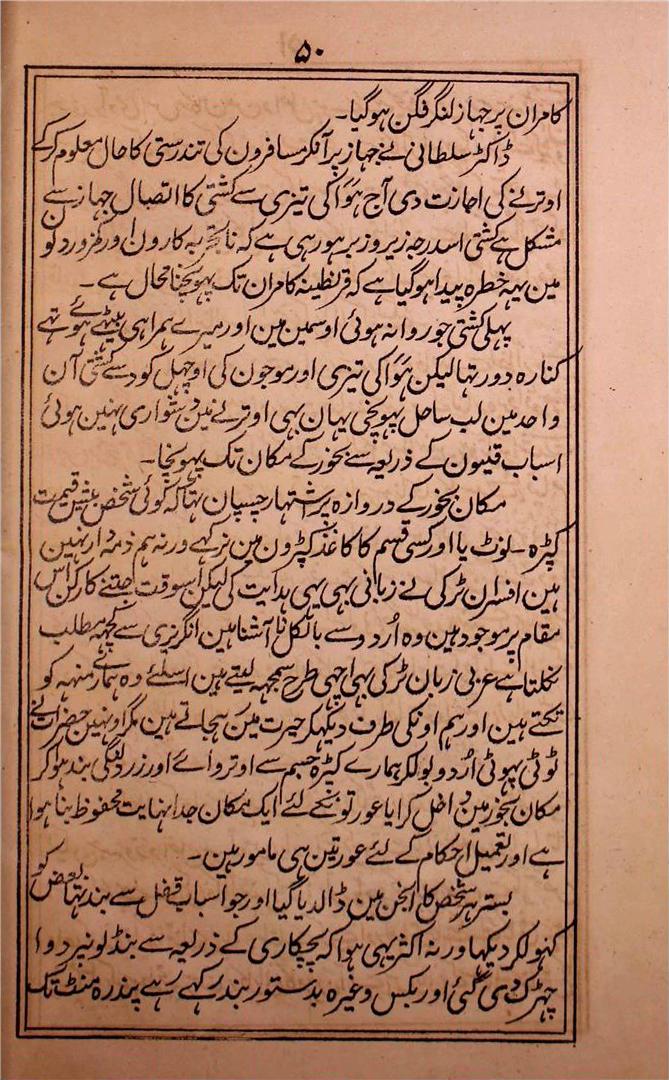 ۵۰
کامران پر جہاز لنگر فگن ہوگیا۔
ڈاکٹر سلطانی نے جہاز پر آنکر مسافرون کی تندرستی کا حال معلوم کرکے
اوترنے کی اجازت دی آج ہَوَا کی تیزی سے کشتی کا اتصال جہاز سے
مشکل ہے کشتی اسدرجہ زیر وزبر ہورہی ہے کہ ناتجربہ کارون اور کمزورون کو
مین یہہ خطرہ پیدا ہوگیا ہے کہ قرنطینہ کامران تک پہونچنا محال ہے۔
پہلی کشتی جو روانہ ہوئی اوسمین مین اور میرے ہمراہی بیٹھے ہوئے تھے
کنارہ دور تہا لیکن ہَوَا کی تیزی اور موجون کی اوچھل کود سے کشتی آن
واحد مین لب ساحل پہونچی یہان بہی اوترنے مین دشواری نہین ہوئی
اسباب قلیون کے ذریعہ سے بخور کے مکان تک پہونچا۔
مکان بخور کے دروازہ پر اشتہار چسپان تہا کہ کوئی شخص بیش قیمت
کپڑہ۔ لوٹ یا اور کسی قسم کا کاغذ کپڑون مین نرکہے ورنہ ہم ذمہ دار نہین
ہین افسران ٹرکی نے زبانی بہی یہی ہدایت کی لیکن اسوقت جتنے کارکن اس
مقام پر موجود ہین وہ اُردو سے بالکل ناآشنا ہین انگریزی سے کچہہ مطلب
نکلتا ہے عربی زبان ٹرکی بہی اچہی طرح سمجہہ لیتے ہین اسلئے وہ ہمارے منہہ کو
تکتے ہین اور ہم اونکی طرف دیکہکر حیرت مین رہجاتے ہین مگر اونہین حضرات نے
ٹوٹی پہوٹی اُردو بولکر ہمارے کپڑہ جسم سے اوتروائے اور زرد لنگی بندہوکر
مکان بخور مین داخل کرایا عورتونکے لئے ایک مکان جدا نہایت محفوظ بنا ہوا
ہے اور تعمیل احکام کے لئے عورتین ہی مامور ہین۔
بستر ہر شخص کا انجن مین ڈالدیا گیا اور جو اسباب قفل سے بند تہا بعض کو
کہولکر دیکہا ورنہ اکثر یہی ہوا کہ پچکاری کے ذریعہ سے بنڈلونپر دوا
چہڑک دی گئی اور بکس وغیرہ بدستور بند رکہے رہے پندرہ منٹ تک